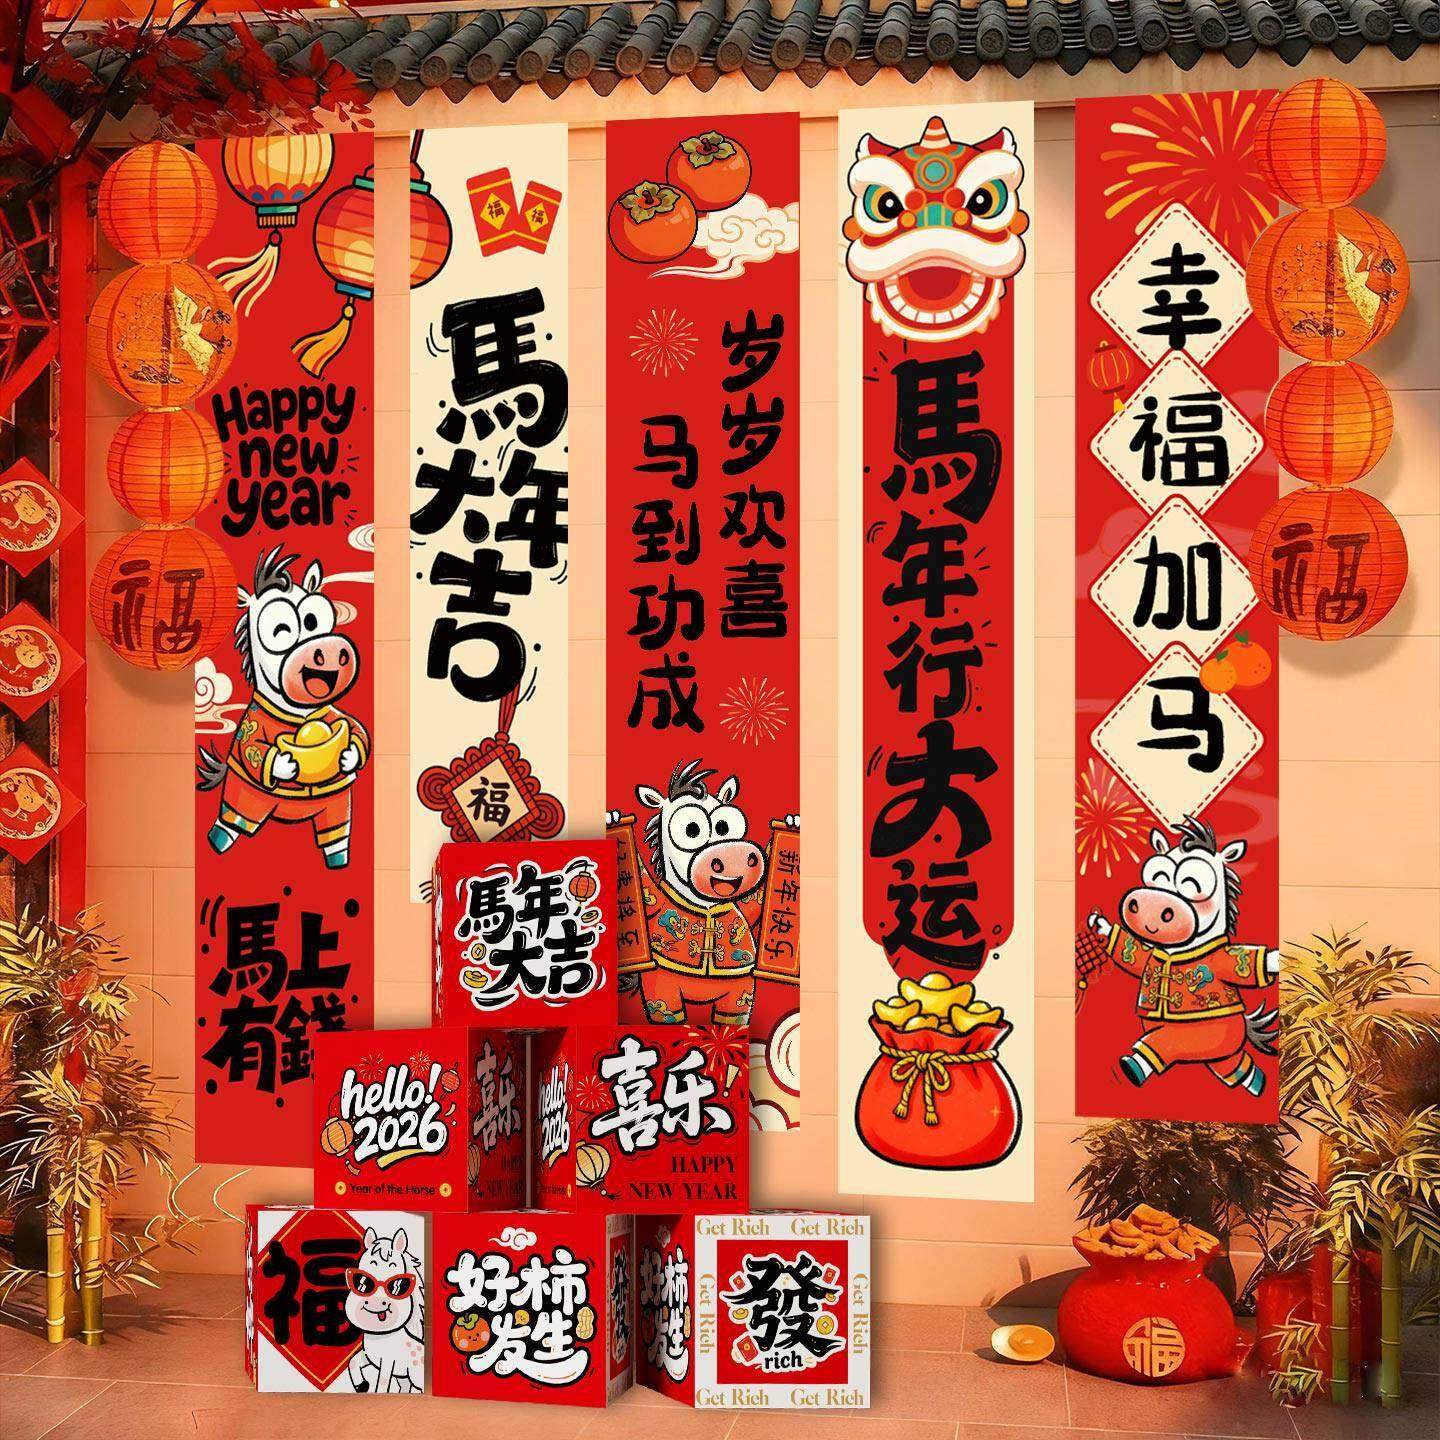 Happy
new
year
馬上
有錢
福
福
馬
年
大
吉
福
岁岁欢喜
马到功成
新年快乐
馬年行大运
幸
福
加
马
福
福
馬年
大吉
hello!
2026
Year of the Horse
喜乐
HAPPY
NEW YEAR
hello!
2026
喜乐
HAPPY
NEW YEAR
福
好柿
发生
好柿
发生
Get Rich Get Rich
Get Rich
發
rich
Get Rich
Get Rich Get Rich
福